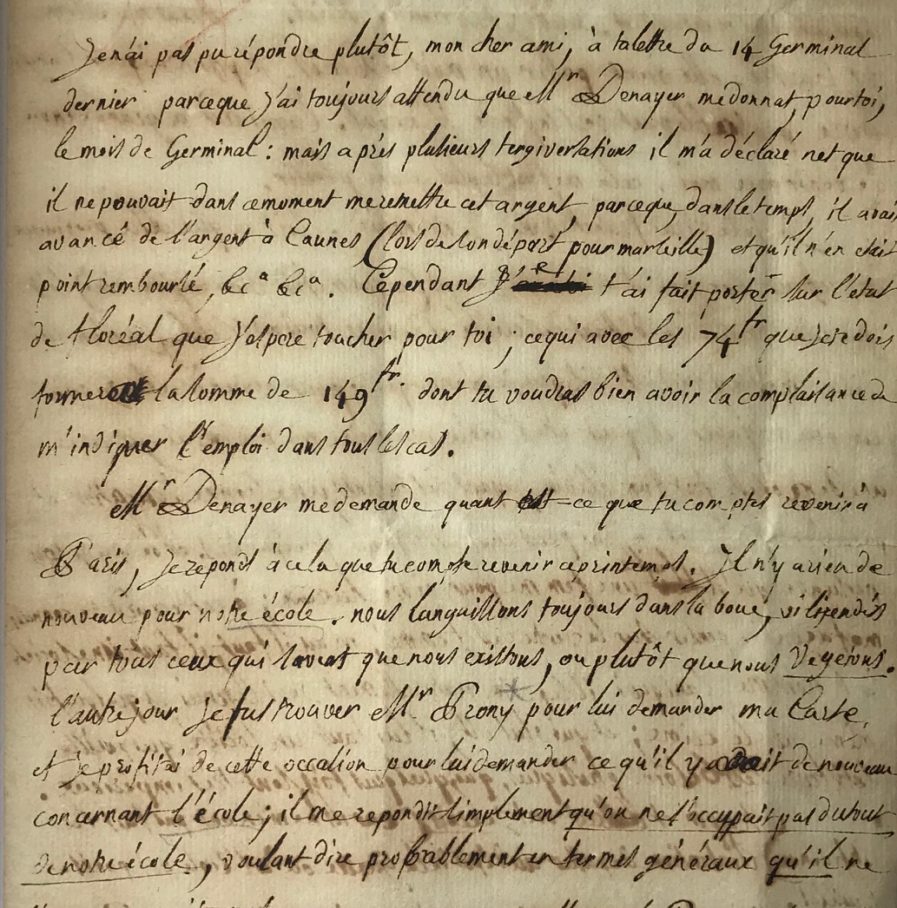 Je n'ai pas pu répondre plutôt, mon cher ami, à ta lettre du 14 Germinal
dernier parceque j'ai toujours attendu que Mr Denayer me donnat, pour toi,
le mois de Germinal : mais après plusieurs tergiversations il m'a déclaré net que
il ne pouvait dans ce moment me remettre cet argent, parceque, dans le temps, il avait
avancé de l'argent à Caunes (lors de son départ pour marseille) et qu'il n'en etait
point remboursé, &ca &ca. Cependant je t'ai fait porter sur l'état
de floréal que j'espere toucher pour toi ; ce qui avec les 74 fr que je te dois
former la somme de 149 fr. dont tu voudras bien avoir la complaisance de
m'indiquer l'emploi dans tous les cas.
Mr Denayer me demande quant est-ce que tu comptes revenir à
Paris, je reponds à cela que tu compte revenir ce printemps. Il n'y a rien de
nouveau pour notre école. nous languissons toujours dans la boue, vilipendés
par tous ceux qui savent que nous existons, ou plutôt que nous végetons.
l'autre jour je fus trouver Mr Prony pour lui demander ma Carte,
et je profitai de cette occasion pour lui demander ce qu'il y avait de nouveau
concernant l'école ; il me repondit simplement qu'on ne s'occuppait pas du tout
de notre école, voulant dire probablement en termes généraux qu'il ne